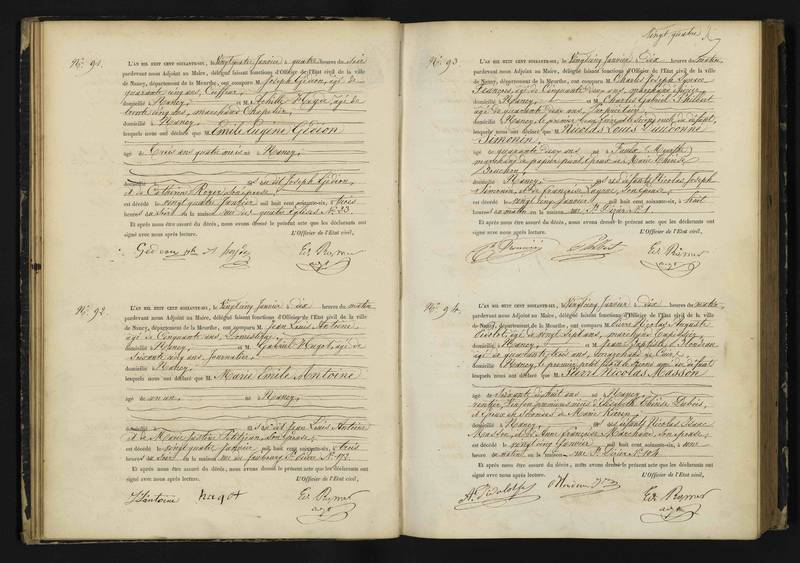 N°. 91.
L'AN MIL HUIT CENT SOIXANTE-SIX, le Vingtquatre Janvier à quatre heures du soir
pardevant nous Adjoint au Maire, délégué faisant fonctions d'Officier de l'Etat civil de la ville
de Nancy, département de la Meurthe, ont comparu M. Joseph Gédéon, âgé de
quarante cinq ans, Coiffeur,
domicilié à Nancy, et M. Achille Hager, âgé de
trente cinq ans, marchand Chapelier,
domicilié à Nancy
lesquels nous ont déclaré que M. Emile Eugène Gédéon
âgé de Trois ans quatre mois né à Nancy,
domicilié fils du dit Joseph Gédéon,
et de Catherine Roger, son épouse,
est décédé le vingt quatre Janvier mil huit cent soixante-six, à trois
heures du soir en la maison rue des quatre Eglises N° 33.
Et après nous être assuré du décès, nous avons dressé le présent acte que les déclarants ont
signé avec nous après lecture. L'Officier de l'Etat civil,
N°. 92.
L'AN MIL HUIT CENT SOIXANTE-SIX, le Vingtcinq Janvier à dix heures du matin
pardevant nous Adjoint au Maire, délégué faisant fonctions d'Officier de l'Etat civil de la ville
de Nancy, département de la Meurthe, ont comparu M. Jean Louis Antoine
âgé de Cinquante ans, Domestique,
domicilié à Nancy, et M. Gabriel Hugot, âgé de
Soixante cinq ans, Journalier,
domicilié à Nancy,
lesquels nous ont déclaré que M. Marie Emile Antoine
âgé de un an, né à Nancy,
domicilié fils du dit Jean Louis Antoine
et de Marie Justine Petitjean, son épouse,
est décédé le vingt quatre Janvier mil huit cent soixante-six, à trois
heures du soir en la maison rue du faubourg St Pierre N° 173.
Et après nous être assuré du décès, nous avons dressé le présent acte que les déclarants ont
signé avec nous après lecture. L'Officier de l'Etat civil,
Antoine hugot
Vingt quatre
N°. 93
L'AN MIL HUIT CENT SOIXANTE-SIX, le Vingtcinq Janvier à dix heures du matin
pardevant nous Adjoint au Maire, délégué faisant fonctions d'Officier de l'Etat civil de la ville
de Nancy, département de la Meurthe, ont comparu M. Charles Joseph
François, âgé de Cinquante deux ans, marchand
domicilié à Nancy, et M. Charles Gabriel Thilbert
âgé de quarante deux ans, propriétaire,
domicilié à Nancy, le premier beau frère et le second du défunt,
lesquels nous ont déclaré que M. Nicolas Louis Dieudonné
Simonin,
âgé de quarante deux ans né à Meurthe
marchand de papier peint, époux de Marie Thérèse
domicilié à Nancy, fils des défunts Nicolas Joseph
Simonin, et de françoise son épouse,
est décédé le vingt cinq Janvier mil huit cent soixante-six, à huit
heures du matin en la maison rue St Dizier N° 1.
Et après nous être assuré du décès, nous avons dressé le présent acte que les déclarants ont
signé avec nous après lecture. L'Officier de l'Etat civil,
N°. 94.
L'AN MIL HUIT CENT SOIXANTE-SIX, le Vingtcinq Janvier à dix heures du matin
pardevant nous Adjoint au Maire, délégué faisant fonctions d'Officier de l'Etat civil de la ville
de Nancy, département de la Meurthe, ont comparu M. Pierre Nicolas Auguste
âgé de vingt sept ans,
domicilié à Nancy, et M. Jean Baptiste
âgé de quarante trois ans, marchand de Cuir,
domicilié à Nancy, le premier petit fils et le second ami du défunt
lesquels nous ont déclaré que M. Henri Nicolas Masson
âgé de Soixante dix huit ans né à Nancy,
rentier, Veuf en premières noces d'Elisabeth Thérèse Dubois,
et époux en secondes de Marie
domicilié à Nancy, fils des défunts Nicolas
Masson, et de Anne françoise Marchand, son épouse,
est décédé le vingt cinq Janvier mil huit cent soixante-six, à une
heure du matin en la maison rue St Dizier N° 104.
Et après nous être assuré du décès, nous avons dressé le présent acte que les déclarants ont
signé avec nous après lecture. L'Officier de l'Etat civil,